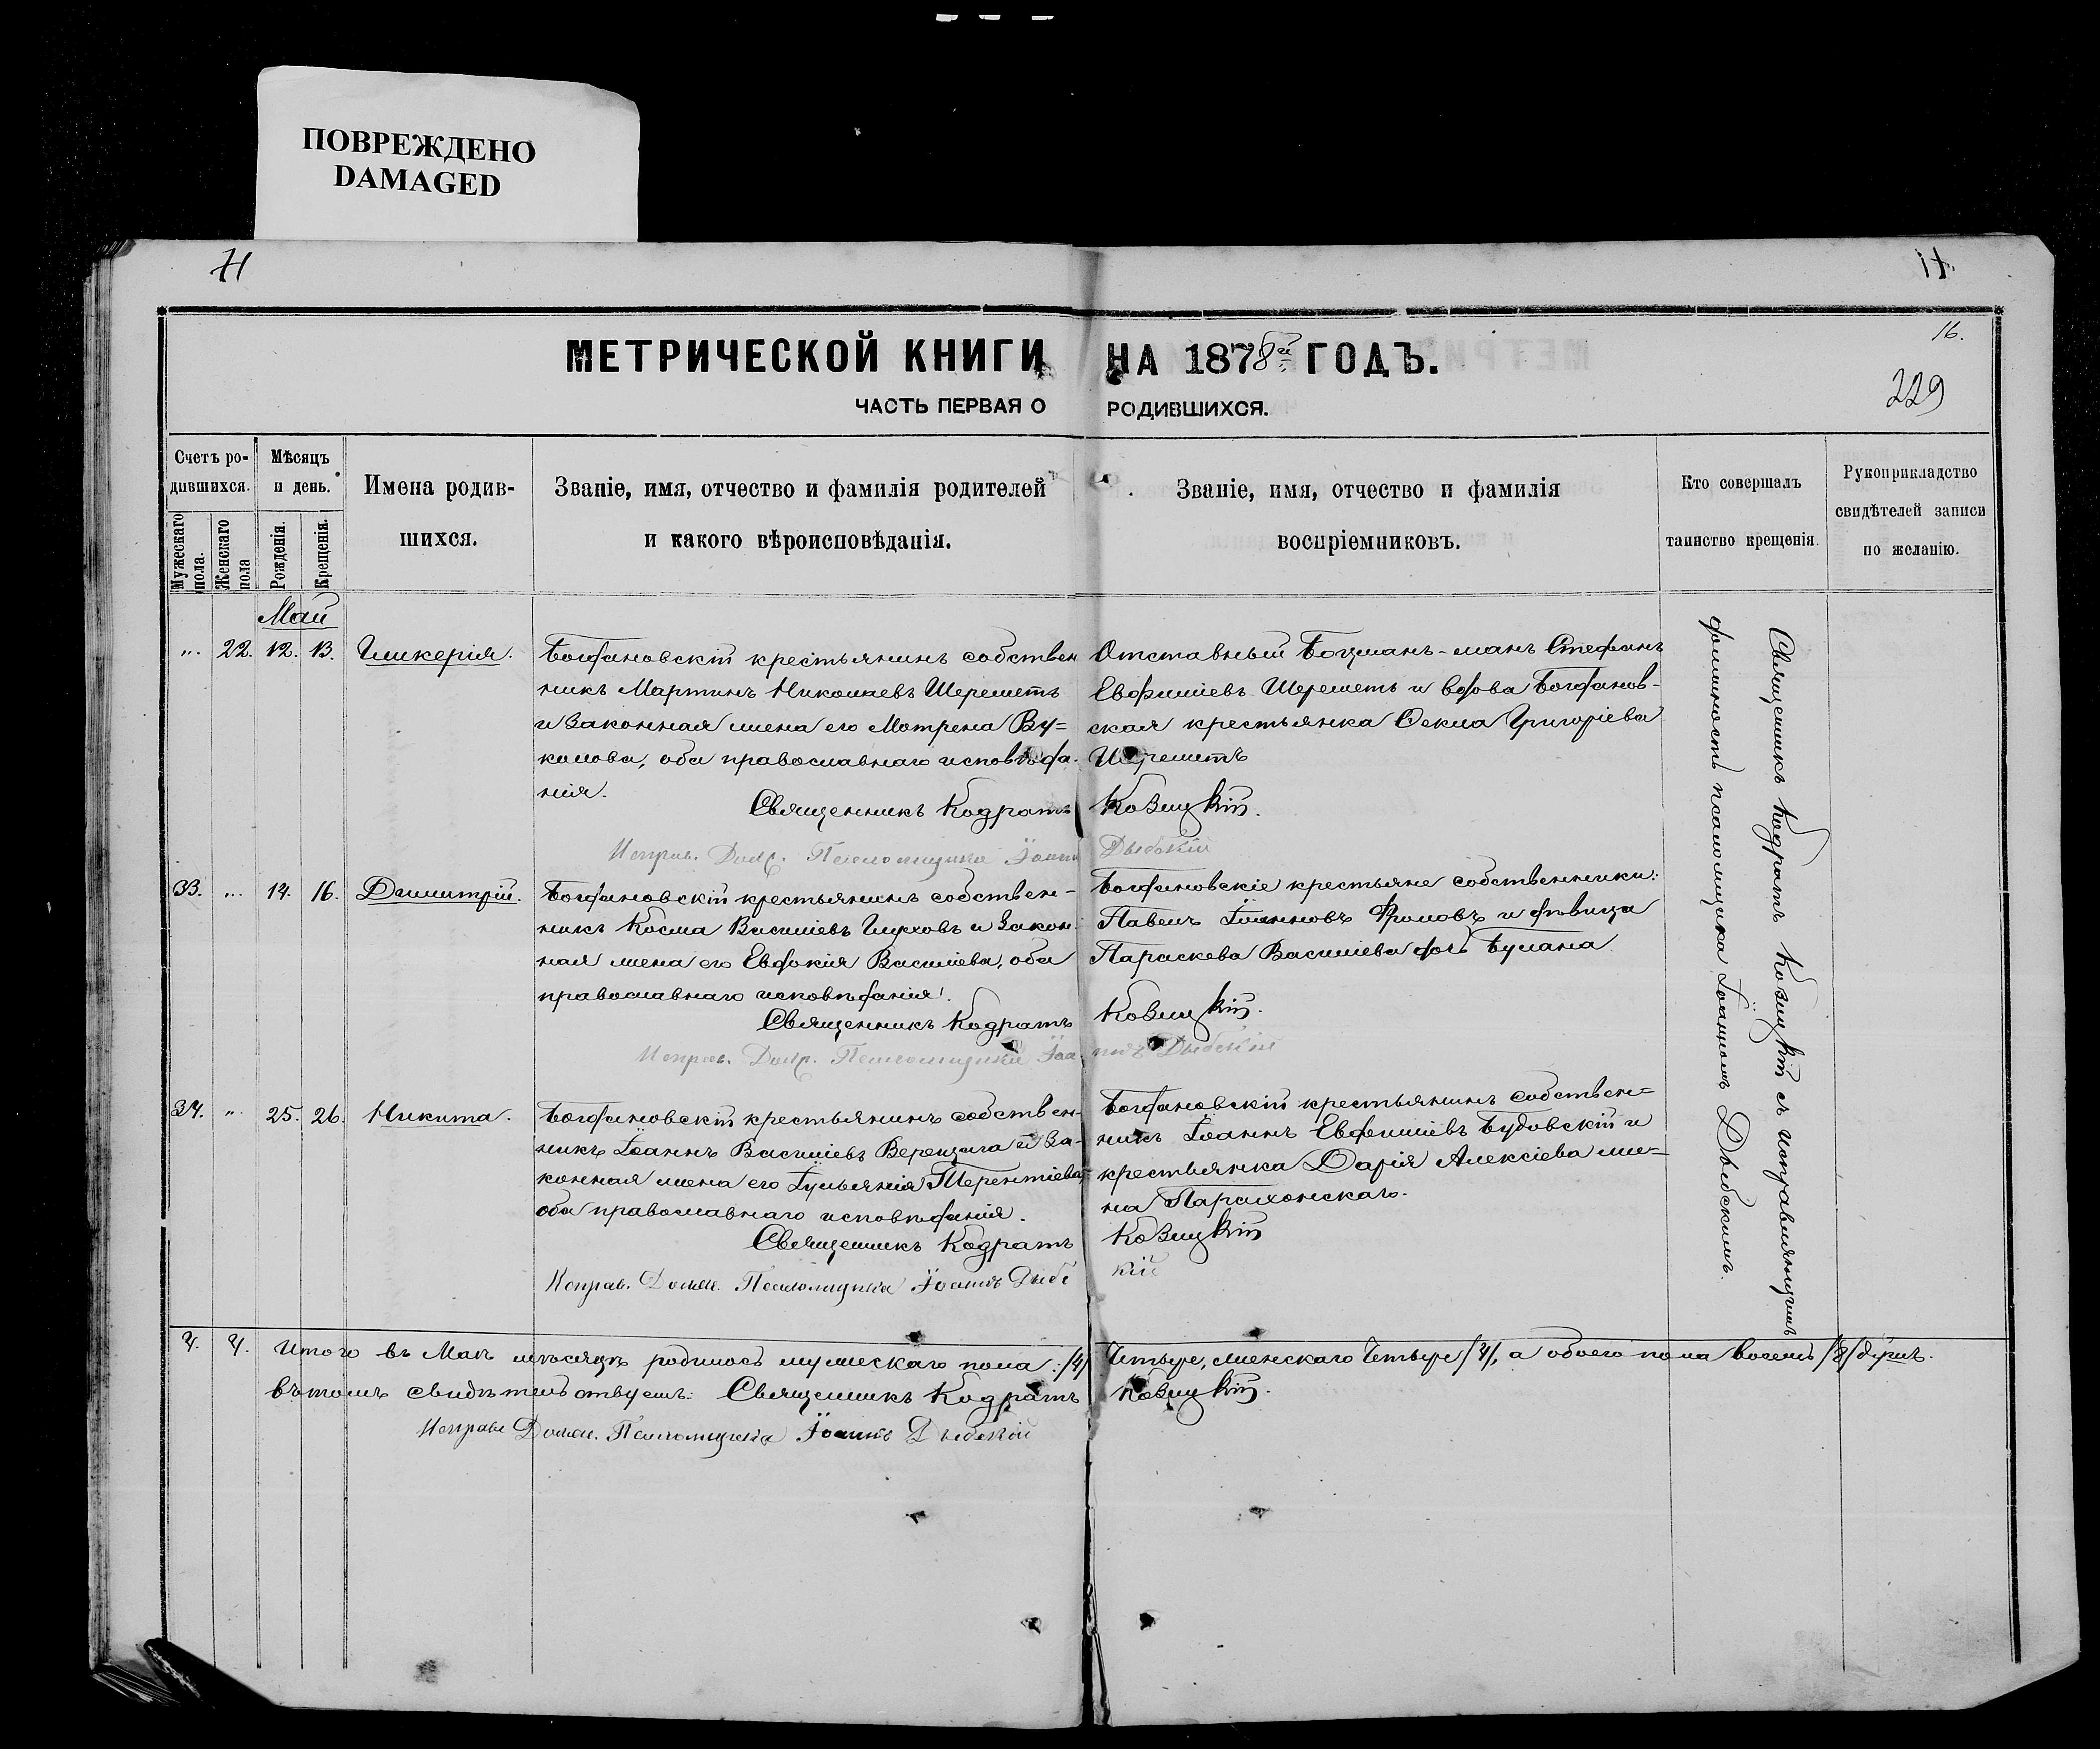 ПОВРЕЖДЕНО
DAMAGED
МЕТРИЧЕСКОЙ КНИГИ НА 1878й ГОДЪ.
ЧАСТЬ ПЕРВАЯ О РОДИВШИХСЯ.
16.
229
Счетъ ро-
дившихся.
Мужескаго пола.
Женскаго пола
Мѣсяцъ
и день.
Рожденія.
Крещенія.
Имена родив-
шихся.
Званіе, имя, отчество и фамилія родителей
и какого вѣроисповѣданія.
Званіе, имя, отчество и фамилія
воспріемниковъ.
Кто совершалъ
таинство крещенія.
Рукоприкладство
свидѣтелей записи
по желанію.
Май
„. 22. 12. 13. Гликерія.
Богдановскій крестьянинъ собствен
никъ Мартинъ Николаевъ Шереметъ
и законная жена его Мотрена Ву=
колова, оба православнаго исповѣда-
нія.
Священникъ Кодратъ Козицкій.
Исправ. Долж. Псаломщика Іоаннъ Дыбскій
Отставный Боцманъ-манъ Стефанъ
Евфиміевъ Шереметъ и вдова Богданов-
ская крестьянка Ѳекла Григоріева
Шереметъ
33. „. 14. 16. Димитрій.
Богдановскій крестьянинъ собствен-
никъ Косма Василіевъ Глуховъ и закон-
ная жена его Евдокія Василіева, оба
православнаго исповѣданія.
Священникъ Кодратъ Козицкій.
Исправ. Долж. Псаломщика Іоаннъ Дыбскій
Богдановскіе крестьяне собственники:
Павелъ Іоанновъ Фроловъ и дѣвица
Параскева Василіева дочь Булана
34. „. 25. 26. Никита.
Богдановскій крестьянинъ собствен-
никъ Іоаннъ Василіевъ Верещага и за-
конная жена его Іуліянія Терентіева,
оба православнаго исповѣданія.
Священникъ Кодратъ Козицкій
Исправ. Долж. Псаломщика Іоаннъ Дыбскій
Богдановскій крестьянинъ собствен=
никъ Іоаннъ Евфиміевъ Будовскій и
крестьянка Дарія Алексіева же=
на Парахонскаго.
Священникъ Кодратъ Козицкій съ исправляющимъ
должность псаломщика Іоанномъ Дыбскимъ.
4. 4. Итого въ Маѣ мѣсяцѣ родилось мужескаго пола: /4/ Четыре, женскаго Четыре /4/, а обоего пола восемь /8/ душъ.
въ томъ свидѣтельствуемъ: Священникъ Кодратъ Козицкій.
Исправл Должн. Псаломщика Іоаннъ Дыбскій